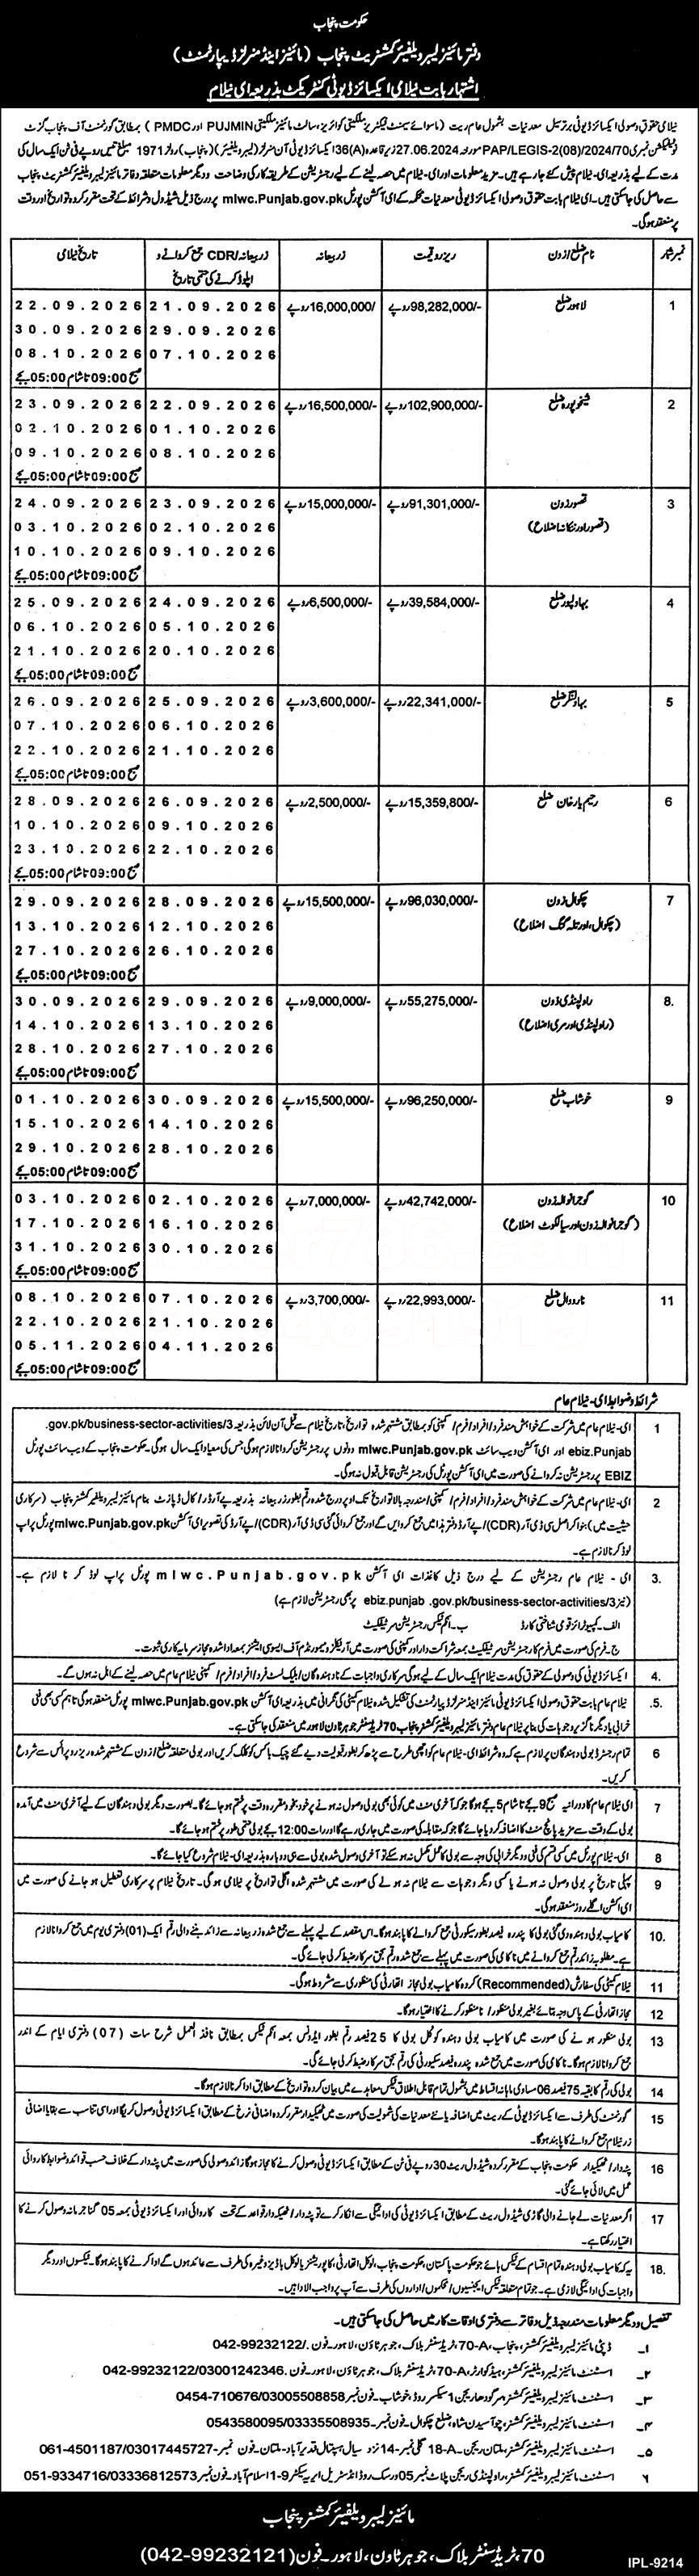 حکومت پنجاب
دفتر مائینز لیبر ویلفیئر کمشنریٹ پنجاب (مائینز اینڈ منرلز ڈیپارٹمنٹ)
اشتہار بابت نیلامی ایکسائز ڈیوٹی کنٹریکٹ بذریعہ ای نیلام
نیلامی حقوق وصولی ایکسائز ڈیوٹی بر ترسیل معدنیات بشمول عام ریت (ماسوائے سیمنٹ فیکٹریز ملکیتی کوائریز، سالٹ مائینز ملکیتی PUJMIN اور PMDC) بمطابق گورنمنٹ آف پنجاب گزٹ
نوٹیفکیشن نمبری PAP/LEGIS-2(08)/2024/70 مورخہ 27.06.2024 زیر قاعدہ 36(A) ایکسائز ڈیوٹی آن منرلز (لیبر ویلفیئر) (پنجاب) رولز 1971 مبلغ تیس روپے فی ٹن ایک سال کی
مدت کے لیے بذریعہ ای۔نیلام پیش کئے جا رہے ہیں۔ مزید معلومات اور ای۔نیلام میں حصہ لینے کے لیے رجسٹریشن کے طریقہ کار کی وضاحت و دیگر معلومات متعلقہ دفاتر مائینز لیبر ویلفیئر کمشنریٹ پنجاب
سے حاصل کی جا سکتی ہیں۔ ای نیلام بابت حقوق وصولی ایکسائز ڈیوٹی معدنیات محکمہ کے ای آکشن پورٹل mlwc.Punjab.gov.pk پر درج ذیل شیڈول و شرائط کے تحت مقرر کردہ تواریخ اور وقت
پر منعقد ہوگی۔
نمبر شمار نام ضلع/زون ریزرو قیمت زر بیعانہ زر بیعانہ/CDR جمع کروانے و اپلوڈ کرنے کی حتمی تاریخ تاریخ نیلامی
1 لاہور ضلع 98,282,000/- روپے 16,000,000/ روپے 21.09.2026 22.09.2026
29.09.2026 30.09.2026
07.10.2026 08.10.2026
صبح 09:00 تا شام 05:00 بجے
2 شیخوپورہ ضلع 102,900,000/- روپے 16,500,000/- روپے 22.09.2026 23.09.2026
01.10.2026 02.10.2026
08.10.2026 09.10.2026
صبح 09:00 تا شام 05:00 بجے
3 قصور زون 91,301,000/- روپے 15,000,000/- روپے 23.09.2026 24.09.2026
(قصور اور ننکانہ اضلاع) 02.10.2026 03.10.2026
09.10.2026 10.10.2026
صبح 09:00 تا شام 05:00 بجے
4 بہاولپور ضلع 39,584,000/- روپے 6,500,000/- روپے 24.09.2026 25.09.2026
05.10.2026 06.10.2026
20.10.2026 21.10.2026
صبح 09:00 تا شام 05:00 بجے
5 بہاولنگر ضلع 22,341,000/- روپے 3,600,000/- روپے 25.09.2026 26.09.2026
06.10.2026 07.10.2026
21.10.2026 22.10.2026
صبح 09:00 تا شام 05:00 بجے
6 رحیم یار خان ضلع 15,359,800/- روپے 2,500,000/- روپے 26.09.2026 28.09.2026
09.10.2026 10.10.2026
22.10.2026 23.10.2026
صبح 09:00 تا شام 05:00 بجے
7 چکوال زون 96,030,000/- روپے 15,500,000/- روپے 28.09.2026 29.09.2026
(چکوال، اور تلہ گنگ اضلاع) 12.10.2026 13.10.2026
26.10.2026 27.10.2026
صبح 09:00 تا شام 05:00 بجے
8. راولپنڈی زون 55,275,000/- روپے 9,000,000/- روپے 29.09.2026 30.09.2026
(راولپنڈی اور مری اضلاع) 13.10.2026 14.10.2026
27.10.2026 28.10.2026
صبح 09:00 تا شام 05:00 بجے
9 خوشاب ضلع 96,250,000/- روپے 15,500,000/- روپے 30.09.2026 01.10.2026
14.10.2026 15.10.2026
28.10.2026 29.10.2026
صبح 09:00 تا شام 05:00 بجے
10 گوجرانوالہ زون 42,742,000/- روپے 7,000,000/- روپے 02.10.2026 03.10.2026
(گوجرانوالہ زون اور سیالکوٹ اضلاع) 16.10.2026 17.10.2026
30.10.2026 31.10.2026
صبح 09:00 تا شام 05:00 بجے
11 نارووال ضلع 22,993,000/- روپے 3,700,000/- روپے 07.10.2026 08.10.2026
21.10.2026 22.10.2026
04.11.2026 05.11.2026
صبح 09:00 تا شام 05:00 بجے
شرائط و ضوابط ای۔نیلام عام
1 ای۔نیلام عام میں شرکت کے خواہش مند فرد/افراد/فرم/کمپنی کو بمطابق مشتہر شدہ تواریخ، تاریخ نیلام سے قبل آن لائن بذریعہ gov.pk/business-sector-activities/3.
ebiz.Punjab اور ای آکشن ویب سائٹ mlwc.Punjab.gov.pk دونوں پر رجسٹریشن کروانا لازم ہوگی جس کی معیاد ایک سال ہوگی۔ حکومت پنجاب کے ویب سائٹ پورٹل
EBIZ پر رجسٹریشن نہ کروانے کی صورت میں ای آکشن پورٹل کی رجسٹریشن قابل قبول نہ ہوگی۔
2 ای۔نیلام عام میں شرکت کے خواہش مند فرد/افراد/فرم/کمپنی/مندرجہ بالا تواریخ تک اوپر درج شدہ رقم بطور زر بیعانہ بذریعہ پے آرڈر/کال ڈپازٹ بنام مائینز لیبر ویلفیئر کمشنر پنجاب (سرکاری
حیثیت میں) بنوا کر اصل سی ڈی آر (CDR)/پے آرڈر دفتر ہذا میں جمع کروائیں گے اور جمع کروائی گئی سی ڈی آر (CDR)/پے آرڈر کی تصویر ای آکشن mlwc.Punjab.gov.pk پورٹل پر اپ
لوڈ کرنا لازم ہے۔
3. ای - نیلام عام رجسٹریشن کے لیے درج ذیل کاغذات ای آکشن mlwc.Punjab.gov.pk پورٹل پر اپ لوڈ کرنا لازم ہے۔
(نیز ebiz.punjab .gov.pk/business-sector-activities/3 پر بھی رجسٹریشن لازم ہے)
الف۔ کمپیوٹرائزڈ قومی شناختی کارڈ ب۔ انکم ٹیکس رجسٹریشن سرٹیفکیٹ
ج۔ فرم کی صورت میں فرم کا رجسٹریشن سرٹیفکیٹ بمعہ شراکت دار اور کمپنی کی صورت میں آرٹیکلز و میمورنڈم آف ایسوسی ایشنز بمعہ ادا شدہ مجاز سرمایہ کاری ثبوت۔
4. ایکسائز ڈیوٹی کی وصولی کے حقوق کی مدت نیلام ایک سال کے لیے ہوگی سرکاری واجبات کے نادہندگان/بلیک لسٹ فرد/افراد/فرم/کمپنی نیلام عام میں حصہ لینے کے اہل نہ ہوں گے۔
5. نیلام عام بابت حقوق وصولی ایکسائز ڈیوٹی مائینز اینڈ منرلز ڈیپارٹمنٹ کی تشکیل شدہ نیلام کمیٹی کی نگرانی میں بذریعہ ای آکشن mlwc.Punjab.gov.pk پورٹل منعقد ہوگی تاہم کسی بھی فنی
خرابی یا دیگر ناگزیر وجوہات کی بنا پر نیلام عام دفتر مائینز لیبر ویلفیئر کمشنر پنجاب 70 ٹریڈ سنٹر جوہر ٹاؤن لاہور میں منعقد کی جا سکتی ہے۔
6 تمام رجسٹرڈ بولی دہندگان پر لازم ہے کہ وہ شرائط ای۔نیلام عام کو اچھی طرح سے پڑھ کر بطور قبولیت دیے گئے چیک باکس کو کلک کریں اور بولی متعلقہ ضلع/زون کے مشتہر شدہ ریزرو پرائس سے شروع
کریں۔
7 ای نیلام عام کا دورانیہ صبح 9 بجے تا شام 5 بجے ہوگا جو کہ آخری منٹ میں کوئی بھی بولی وصول نہ ہونے پر خود بخود مقررہ وقت پر ختم ہو جائے گا۔ بصورت دیگر بولی دہندگان کے لیے آخری منٹ میں آمدہ
بولی کے وقت سے مزید پانچ منٹ کا اضافہ کر دیا جائے گا جو کہ مقابلہ کی صورت میں جاری رہے گا اور رات 12:00 بجے بولی حتمی طور پر ختم ہو جائے گی۔
8 ای۔نیلام پورٹل میں کسی قسم کی فنی و دیگر خرابی کی وجہ سے بولی کا عمل مکمل نہ ہو سکے تو آخری وصول شدہ بولی سے ہی دوبارہ بذریعہ ای۔نیلام شروع کیا جائے گا۔
9 پہلی تاریخ پر بولی وصول نہ ہونے یا کسی دیگر وجوہات سے نیلام نہ ہونے کی صورت میں مشتہر شدہ اگلی تواریخ پر نیلامی ہوگی۔ تاریخ نیلام پر سرکاری تعطیل ہو جانے کی صورت میں
ای آکشن اگلے روز منعقد ہوگی۔
10. کامیاب بولی دہندہ دی گئی بولی کا پندرہ فیصد بطور سیکورٹی جمع کروانے کا پابند ہوگا۔ اس مقصد کے لیے پہلے سے جمع شدہ زر بیعانہ سے زائد بننے والی رقم ایک (01) دفتری یوم میں جمع کروانا لازم
ہے۔ مطلوبہ زائد رقم جمع کروانے میں ناکامی کی صورت میں پہلے سے جمع شدہ رقم بحق سرکار ضبط کر لی جائے گی۔
11 نیلام کمیٹی کی سفارش (Recommended) کردہ کامیاب بولی مجاز اتھارٹی کی منظوری سے مشروط ہوگی۔
12 مجاز اتھارٹی کے پاس وجہ بتائے بغیر بولی منظور/نامنظور کرنے کا اختیار ہوگا۔
13 بولی منظور ہونے کی صورت میں کامیاب بولی دہندہ کو کل بولی کا 25 فیصد رقم بطور ایڈوانس بمعہ انکم ٹیکس بمطابق نافذ العمل شرح سات (07) دفتری ایام کے اندر
جمع کروانا لازم ہوگا۔ ناکامی کی صورت میں جمع شدہ پندرہ فیصد سیکورٹی کی رقم بحق سرکار ضبط کر لی جائے گی۔
14 بولی کی رقم کا بقیہ 75 فیصد 06 مساوی ماہانہ اقساط میں بشمول تمام قابل اطلاق ٹیکس معاہدے میں بیان کردہ تواریخ کے مطابق ادا کرنا لازم ہوگا۔
15 گورنمنٹ کی طرف سے ایکسائز ڈیوٹی کے ریٹ میں اضافہ یا نئے معدنیات کی شمولیت کی صورت میں ٹھیکیدار مقرر کردہ اضافی نرخ کے مطابق ایکسائز ڈیوٹی وصول کریگا اور اسی تناسب سے بقایا اضافی
زر نیلام جمع کروانے کا پابند ہوگا۔
16 پٹہ دار/ٹھیکیدار حکومت پنجاب کے مقرر کردہ شیڈول ریٹ 30 روپے فی ٹن کے مطابق ایکسائز ڈیوٹی وصول کرنے کا مجاز ہوگا زائد وصولی کی صورت میں پٹہ دار کے خلاف حسب قواعد و ضوابط کاروائی
عمل میں لائی جائے گی۔
17 اگر معدنیات لے جانے والی گاڑی شیڈول ریٹ کے مطابق ایکسائز ڈیوٹی کی ادائیگی سے انکار کرے تو پٹہ دار/ٹھیکیدار قواعد کے تحت کاروائی اور ایکسائز ڈیوٹی بمعہ 05 گنا جرمانہ وصول کرنے کا
اختیار رکھتا ہے۔
18. یہ کہ کامیاب بولی دہندہ تمام اقسام کے ٹیکس ہائے جو حکومت پاکستان، حکومت پنجاب، لوکل اتھارٹی، کارپوریشنز یا لوکل باڈیز وغیرہ کی طرف سے عائد ہوں گے ادا کرنے کا پابند ہوگا۔ ٹیکسوں اور دیگر
واجبات کی ادائیگی لازمی ہے۔ جو تمام متعلقہ ٹیکس ایجنسیوں/محکموں/اداروں کی طرف سے آپ پر واجب الادا ہیں۔
تفصیل و دیگر معلومات مندرجہ ذیل دفاتر سے دفتری اوقات کار میں حاصل کی جا سکتی ہیں۔
۱۔ ڈپٹی مائینز لیبر ویلفیئر کمشنر، پنجاب، 70-A، ٹریڈ سنٹر بلاک، جوہر ٹاؤن، لاہور۔ فون۔/042-99232122
۲۔ اسسٹنٹ مائینز لیبر ویلفیئر کمشنر، ہیڈ کوارٹر، 70-A، ٹریڈ سنٹر بلاک، جوہر ٹاؤن، لاہور۔ فون۔ 042-99232122/03001242346
۳۔ اسسٹنٹ مائینز لیبر ویلفیئر کمشنر، سرگودھا ریجن 1 سیکسر روڈ، خوشاب۔ فون نمبر 0454-710676/03005508858
۴۔ اسسٹنٹ مائینز لیبر ویلفیئر کمشنر، چوآ سیدن شاہ، ضلع چکوال۔ فون نمبر۔ 0543580095/03335508935
۵۔ اسسٹنٹ مائینز لیبر ویلفیئر کمشنر، ملتان ریجن۔ 18-A گلی نمبر 14- نزد سیال ہسپتال قدیر آباد۔ ملتان۔ فون نمبر۔ 061-4501187/03017445727
۶ اسسٹنٹ مائینز لیبر ویلفیئر کمشنر، راولپنڈی ریجن پلاٹ نمبر 05 ورسک روڈ انڈسٹریل ایریا سیکٹر 1-9 اسلام آباد۔ فون نمبر 051-9334716/03336812573
مائینز لیبر ویلفیئر کمشنر پنجاب
70، ٹریڈ سنٹر بلاک، جوہر ٹاؤن، لاہور۔ فون (042-99232121)
IPL-9214